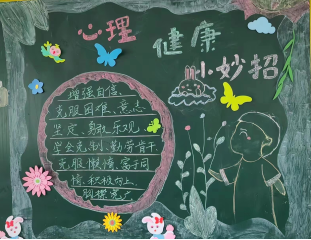 心理
健康
小妙招
增强自信、
克服困难、意志
坚定、勇敢、乐观、
学会克制、勤劳肯干、
克服懒惰、富于同
情、积极向上、